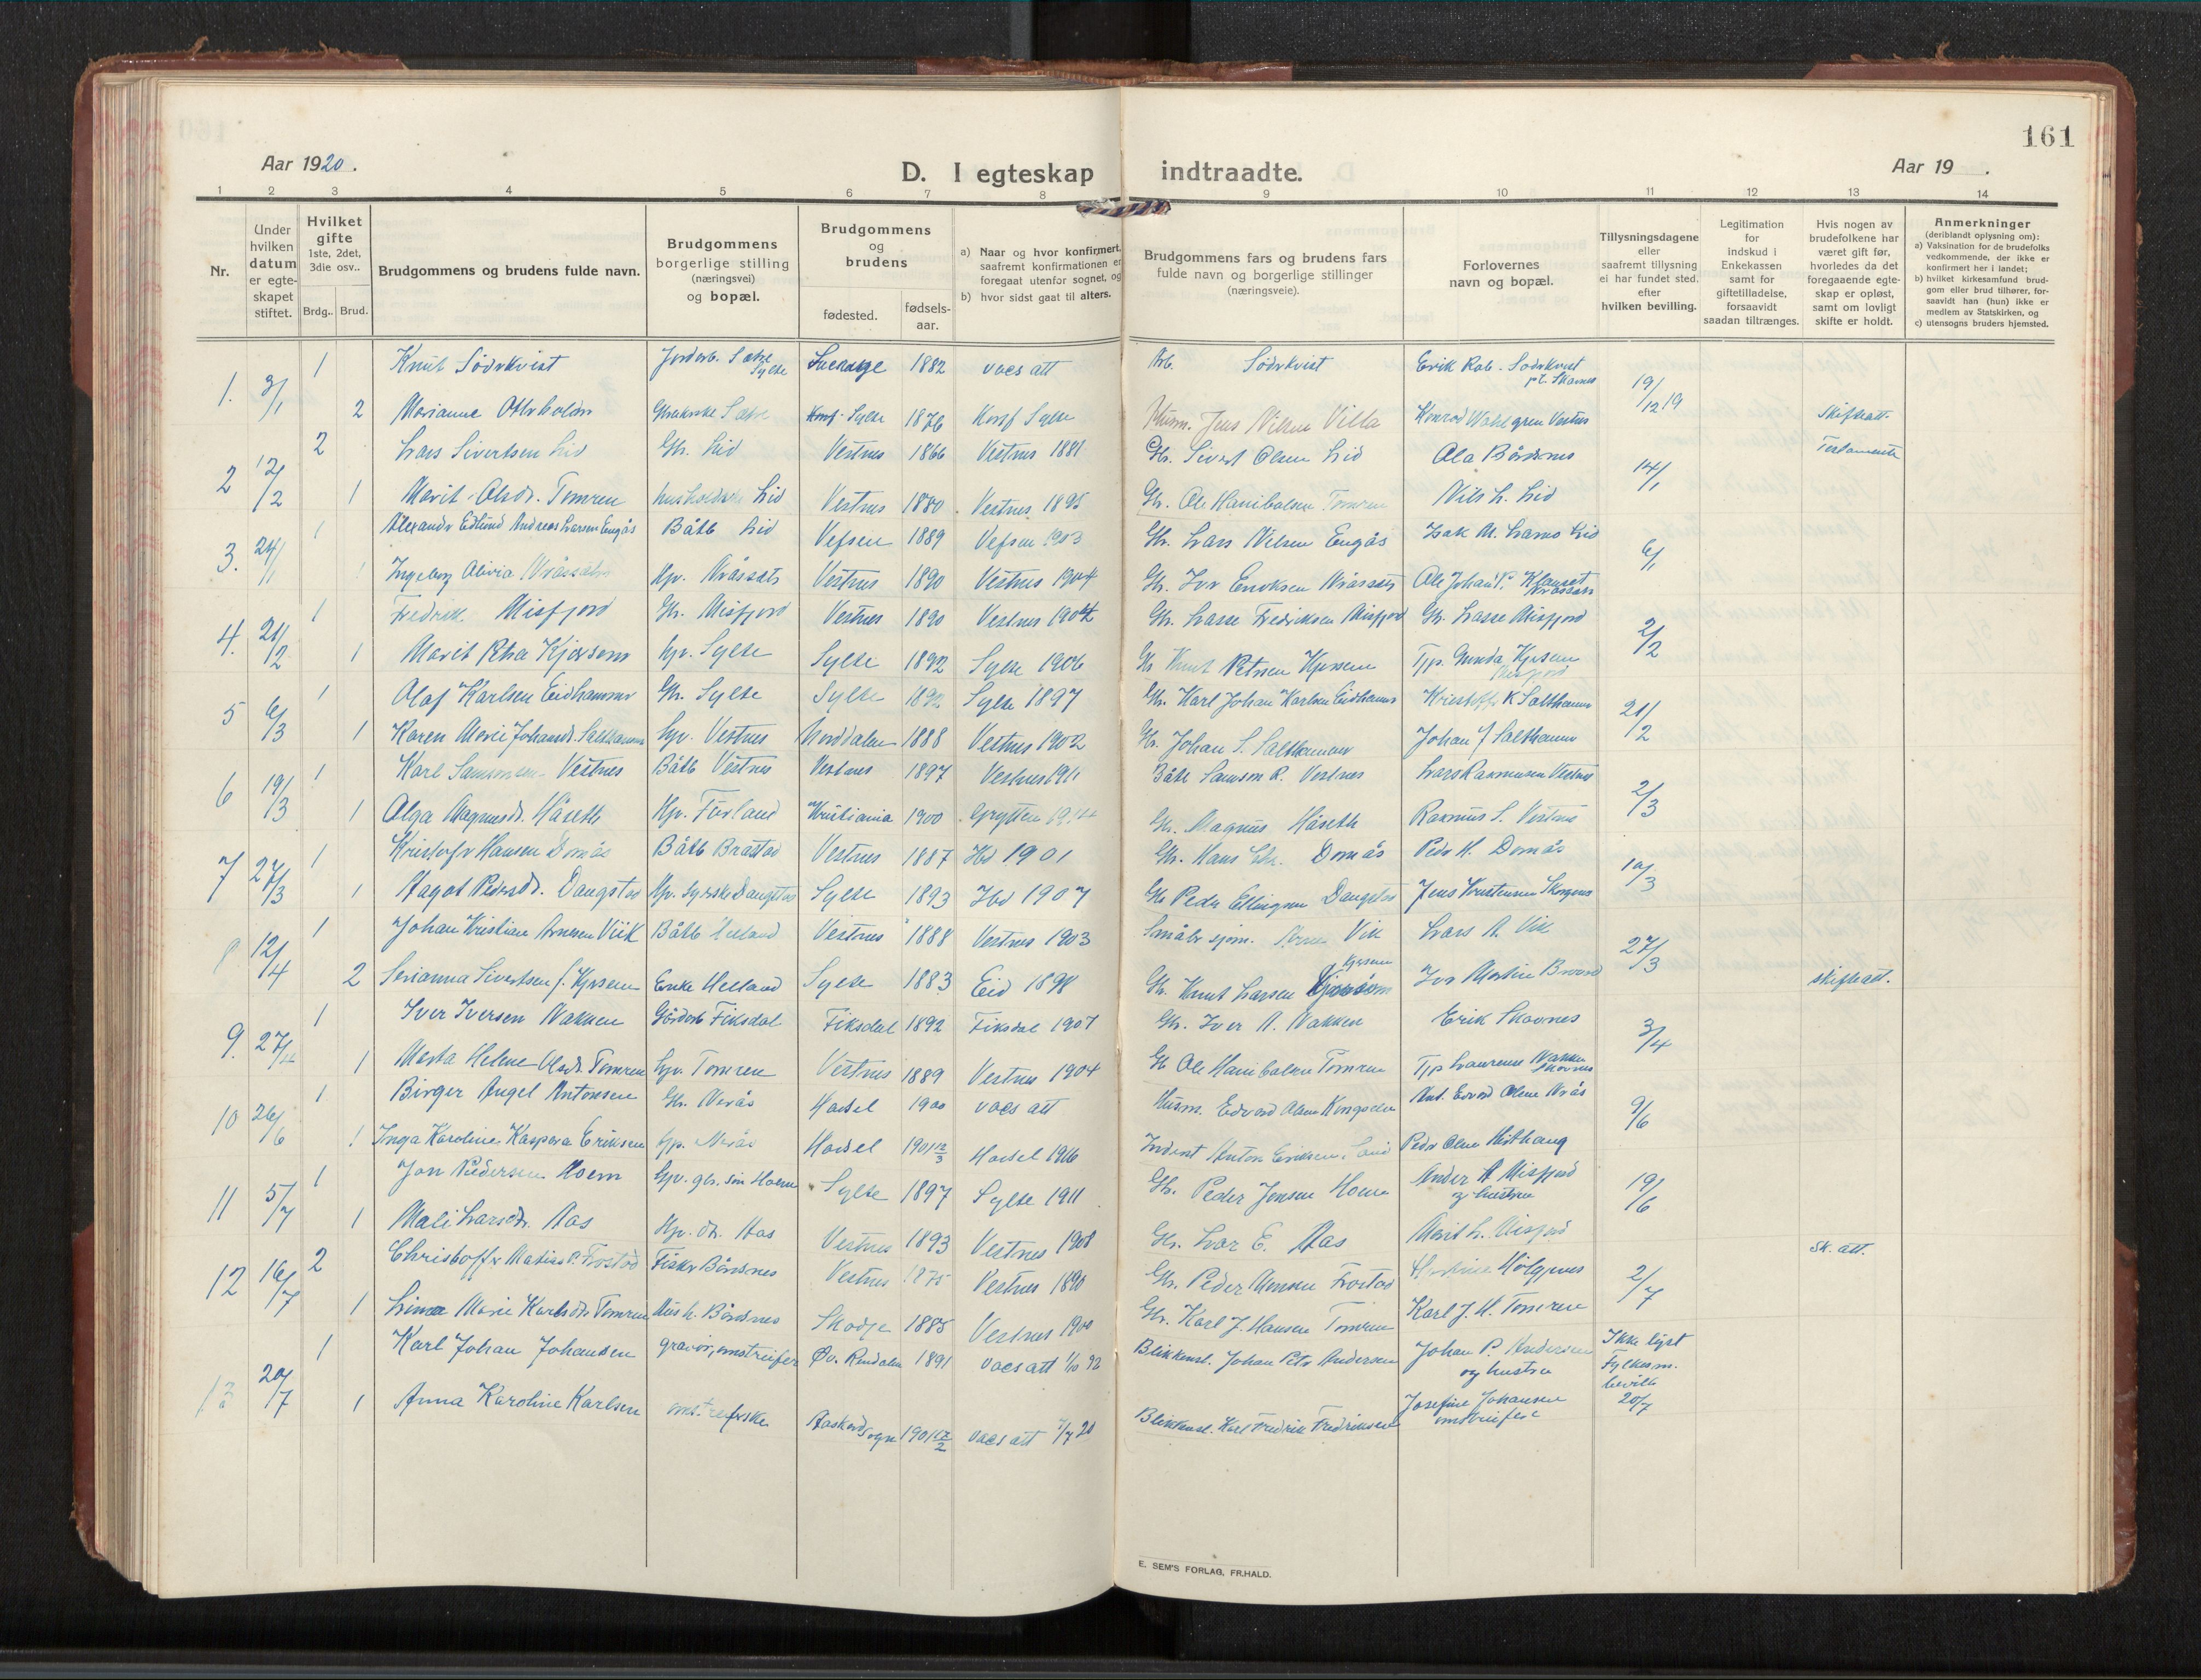 161
Aar 1920.
D. I egteskap indtraadte.
Aar 19 .
1 2 3 4 5 6 7 8 9 10 11 12 13 14
Nr.
Under hvilken datum er egteskapet stiftet.
Hvilket gifte 1ste, 2det, 3die osv..
Brdg.. Brud.
Brudgommens og brudens fulde navn.
Brudgommens borgerlige stilling (næringsvei) og bopæl.
Brudgommens og brudens
fødested.
fødselsaar.
a) Naar og hvor konfirmert, saafremt konfirmationen er foregaat utenfor sognet, og
b) hvor sidst gaat til alters.
Brudgommens fars og brudens fars fulde navn og borgerlige stillinger (næringsveie).
Forlovernes navn og bopæl.
Tillysningsdagene eller saafremt tillysning ei har fundet sted, efter hvilken bevilling.
Legitimation for indskud i Enkekassen samt for giftetilladelse, forsaavidt saadan tiltrænges.
Hvis nogen av brudefolkene har været gift før, hvorledes da det foregaaende egteskap er opløst, samt om lovligt skifte er holdt.
Anmerkninger (deriblandt oplysning om):
a) Vaksination for de brudefolks vedkommende, der ikke er konfirmert her i landet;
b) hvilket kirkesamfund brudgom eller brud tilhører, forsaavidt han (hun) ikke er medlem av Statskirken, og
c) utensogns bruders hjemsted.
1. 3/1 1 Knut Södrkvist 1882 vacs att Arb. Södrkvist Erik Rob. Södrkvist 19/12 19
2 Marianne 1876 Konf Sylte Husm. Jens Nilsen Villa Konrad Wahlgren Vestnes Skifteatt.
2 12/2 2 Lars Sivertsen Lid Gbr. Lid Vestnes 1866 Vestnes 1881 Gbr. Sivert Olsen Lid Ola Bårdsnes 14/1 Testamente
1 Marit Olsdr. Tomren Lid Vestnes 1880 Vestnes 1895 Gbr. Ole Hanibalsen Tomren Nils L. Lid
3. 24/1 1 Alexandr Edlund Andreas Larsen Engås Båtb Lid Vefsen 1889 Vefsen 1903 Gbr. Lars Nilsen Engås Lid 6/1
Ingeborg Olivia Vestnes 1890 Vestnes 1904 Gbr. Ivr Eriksen Ole Johan P.
4. 21/2 1 Fredrik Misfjord Gbr. Misfjord Vestnes 1890 Vestnes 1904 Gbr. Lasse Fredriksen Misfjord Gbr. Lasse Misfjord 2/2
1 Marit Petra Kjersem Sylte Sylte 1892 Sylte 1906 Gbr Knut Petrsen Kjersem Tjp. Gunda Kjersem Misfjord
5 6/3 1 Olaf Karlsen Eidhammer Gbr. Sylte Sylte Sylte 1897 Gbr. Karl Johan Karlsen Eidhammer K Salthammer 21/2
1 Karen Marie Johansdr. Salthammer Vestnes Norddalen 1888 Vestnes 1902 Gbr. Johan S. Salthammer Johan J Salthammer
6 19/3 1 Karl Samsonsen Vestnes Båtb Vestnes Vestnes 1897 Vestnes 1911 Båtb Samson R. Vestnes Lars Rasmussen Vestnes 2/3
1 Olga Magnusdr. Håseth Hpv. Furland Kristiania 1900 Grytten 1914 Gbr. Magnus Håseth Rasmus S. Vestnes
7 27/3 1 Kristofr Hansen Domås Båtb Brastad Vestnes 1887 Ibd 1901 Gbr. Hans Chr. Domås Pedr H. Domås 10/3
1 Magot Pedrsdr. Daugstad Hpv. syrske Daugstad Sylte 1893 Ibd 1907 Gbr Pedr Ellingsen Daugstad Jens Kristensen Skorgenes
8 12/4 1 Johan Kristian Arnesen Viik Båtb Helland Vestnes 1888 Vestnes 1903 Småbr sjøm. Arne Vik Lars A. Vik 27/3
2 Serianna Sivertsen f. Kjersem Enke Helland Sylte 1883 Eid 1898 Gbr. Knut Larsen Kjersem Ivr Martin skifteatt.
9. 27/4 1 Iver Iversen Nakken Fiksdal Fiksdal 1892 Fiksdal 1907 Gbr. Iver A. Nakken Erik Skovnes 3/4
1 Marta Helene Olsdr. Tomren Tomren Vestnes 1889 Vestnes 1904 Gb Ole Hanibalsen Tomren Tjp Laurense Nakken Skovnes
10 26/6 1 Birger Angel Antonsen Gbr. Hadsel 1900 vacs att Husm. Edvard Olsen 9/6
1 Inga Karoline Kaspara Eriksen Hadsel 1901 12/3 Hadsel 1916 Inderst Anton Eriksen Pedr Olsen
11 5/7 1 Jon Pedersen Hoem Gpv. gbr. søn Hoem Sylte 1897 Sylte 1911 Gb. Peder Jonsen Hoem Ander A Misfjord og hustru 19/6
1 Mali Larsdr. Aas Hpv. dr. Aas Vestnes 1893 Vestnes 1908 Gbr. Lars E. Aas Marit L. Misfjord
12 16/7 2 Christoffr Matias P. Frostad Fiskr Bårdsnes Vestnes 1875 Vestnes 1890 Gbr. Peder Monsen Frostad 2/7 Sk. att.
1 Linea Marie Karlsdr. Tomren Hush. Bårdsnes Skodje 1885 Vestnes 1900 Gbr. Karl J. Hansen Tomren Karl J. H. Tomren
13 20/7 1 Karl Johan Johansen gravør, omstreifer Øv. Rendalen 1891 vacs att 1/10 92 Blikkensl. Johan Petr Andersen Johan P. Andersen og hustru Ikke lyst Fylkesm. bevilb 20/7
1 Anna Karoline Karlsen omstreiferske 1901 17/2 vacs att 7/7 20 Blikkensl. Karl Fredrik Fredriksen Josefine Johansen omstreifer
E. SEM'S FORLAG, FR.HALD.